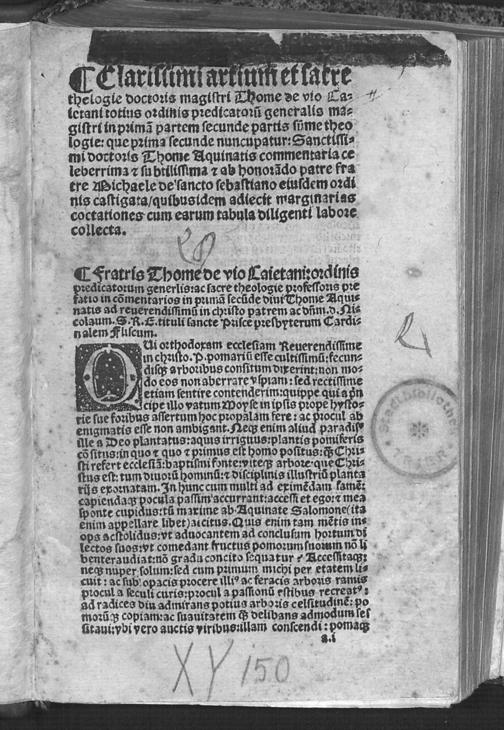 ¶ Clarissimi artium et sacre
theologie doctoris magistri Thome de vio Ca-
ietani totius ordinis predicatorū generalis ma-
gistri in primā partem secunde partis sūme theo
logie: que prima secunde nuncupatur: Sanctissi-
mi doctoris Thome Aquinatis commentaria ce
leberrima & subtilissima & ab honorādo patre fra
tre Michaele de sancto sebastiano eiusdem ordi
nis castigata/quibusidem adiecit marginarias
coctationes cum earum tabula diligenti labore
collecta.
28
¶ Fratris Thome de vio Caietani: ordinis
predicatorum generlis: ac sacre theologie professoris pre
fatio in cōmentarios in primā secūde diui Thome Aqui-
natis ad reuerendissimū in christo patrem ac dñm. d. Ni-
colaum. S. R. E. tituli sancte Prisce presbyterum Cardi-
nalem Fliscum.
QUi orthodoxam ecclesiam Reuerendissime
in christo. P. pomariū esse cultissimū: fecun-
disq; arboribus consitum dixerint: non mo-
do eos non aberrare vspiam: sed rectissime
etiam sentire contenderim: quippe qui a prin
cipe illo vatum Moyse in ipsis prope hysto-
rie sue foribus assertum hoc propalam fere: ac procul ab
enigmatis esse non ambigant. Neq; enim aliud paradisꝰ
ille a Deo plantatus: aquis irriguus: plantis pomiferis
cōsitus: in quo & quo & primus est homo positus: q̄; Chri
sti refert ecclesiā: baptismi fonte: viteq; arbore: que Chri
stus est: tum diuorū hominū: & disciplinis illustriū planta
rijs exornatam. In hunc cum multi ad eximēdam famē:
capiendaq; pocula passim accurrant: accessi et ego: & mea
sponte cupidus: tū maxime ab Aquinate Salomone (ita
enim appellare libet) accitus. Quis enim tam mētis in-
ops ac stolidus: vt aduocantem ad conclusum hortum di
lectos suos: vt comedant fructus pomorum suorum nō li
benter audiat: nō gradu concito sequatur? Accessi itaq;
neq; nuper solum: sed cum primum michi per etatem li-
cuit: ac sub opacis procere illiꝰ ac feracis arboris ramis
procul a seculi curis: procul a passionū estibus recreatꝰ:
ad radices diu admirans potius arboris celsitudinē: po
morūq; copiam: ac suauitatem q̄; delibans admodum ses
sitaui: vbi vero auctis viribus: illam conscendi: pomaq;
a.i
XV 150
Stadtbibliothek